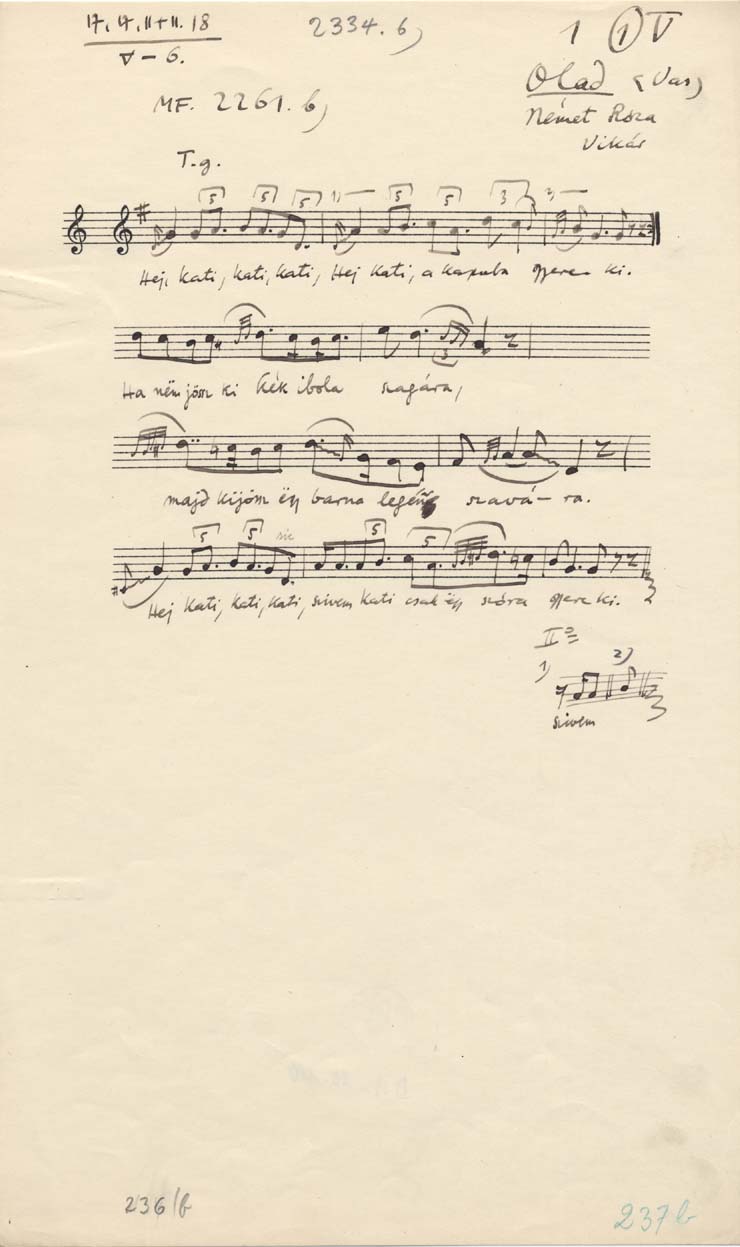 17, 17, 11+11. 18
2334. b)
1 1 V
V – 6.
MF. 2261. b)
Olad (Vas)
Német Róza
Vikár
T. g.
5 5 5 1) 5 5 3 2)
Hej, Kati, Kati, Kati, Hej Kati, a kapuba gyere ki.
3
Ha nëm jössz ki kék ibola szagára,
majd kijössz ëgy barna legény szavá – ra.
5 5 sic 5 5
Hej Kati, Kati, Kati, szivem Kati csak ëgy szóra gyere ki.
II
1) 2)
szivem
236/b
237b